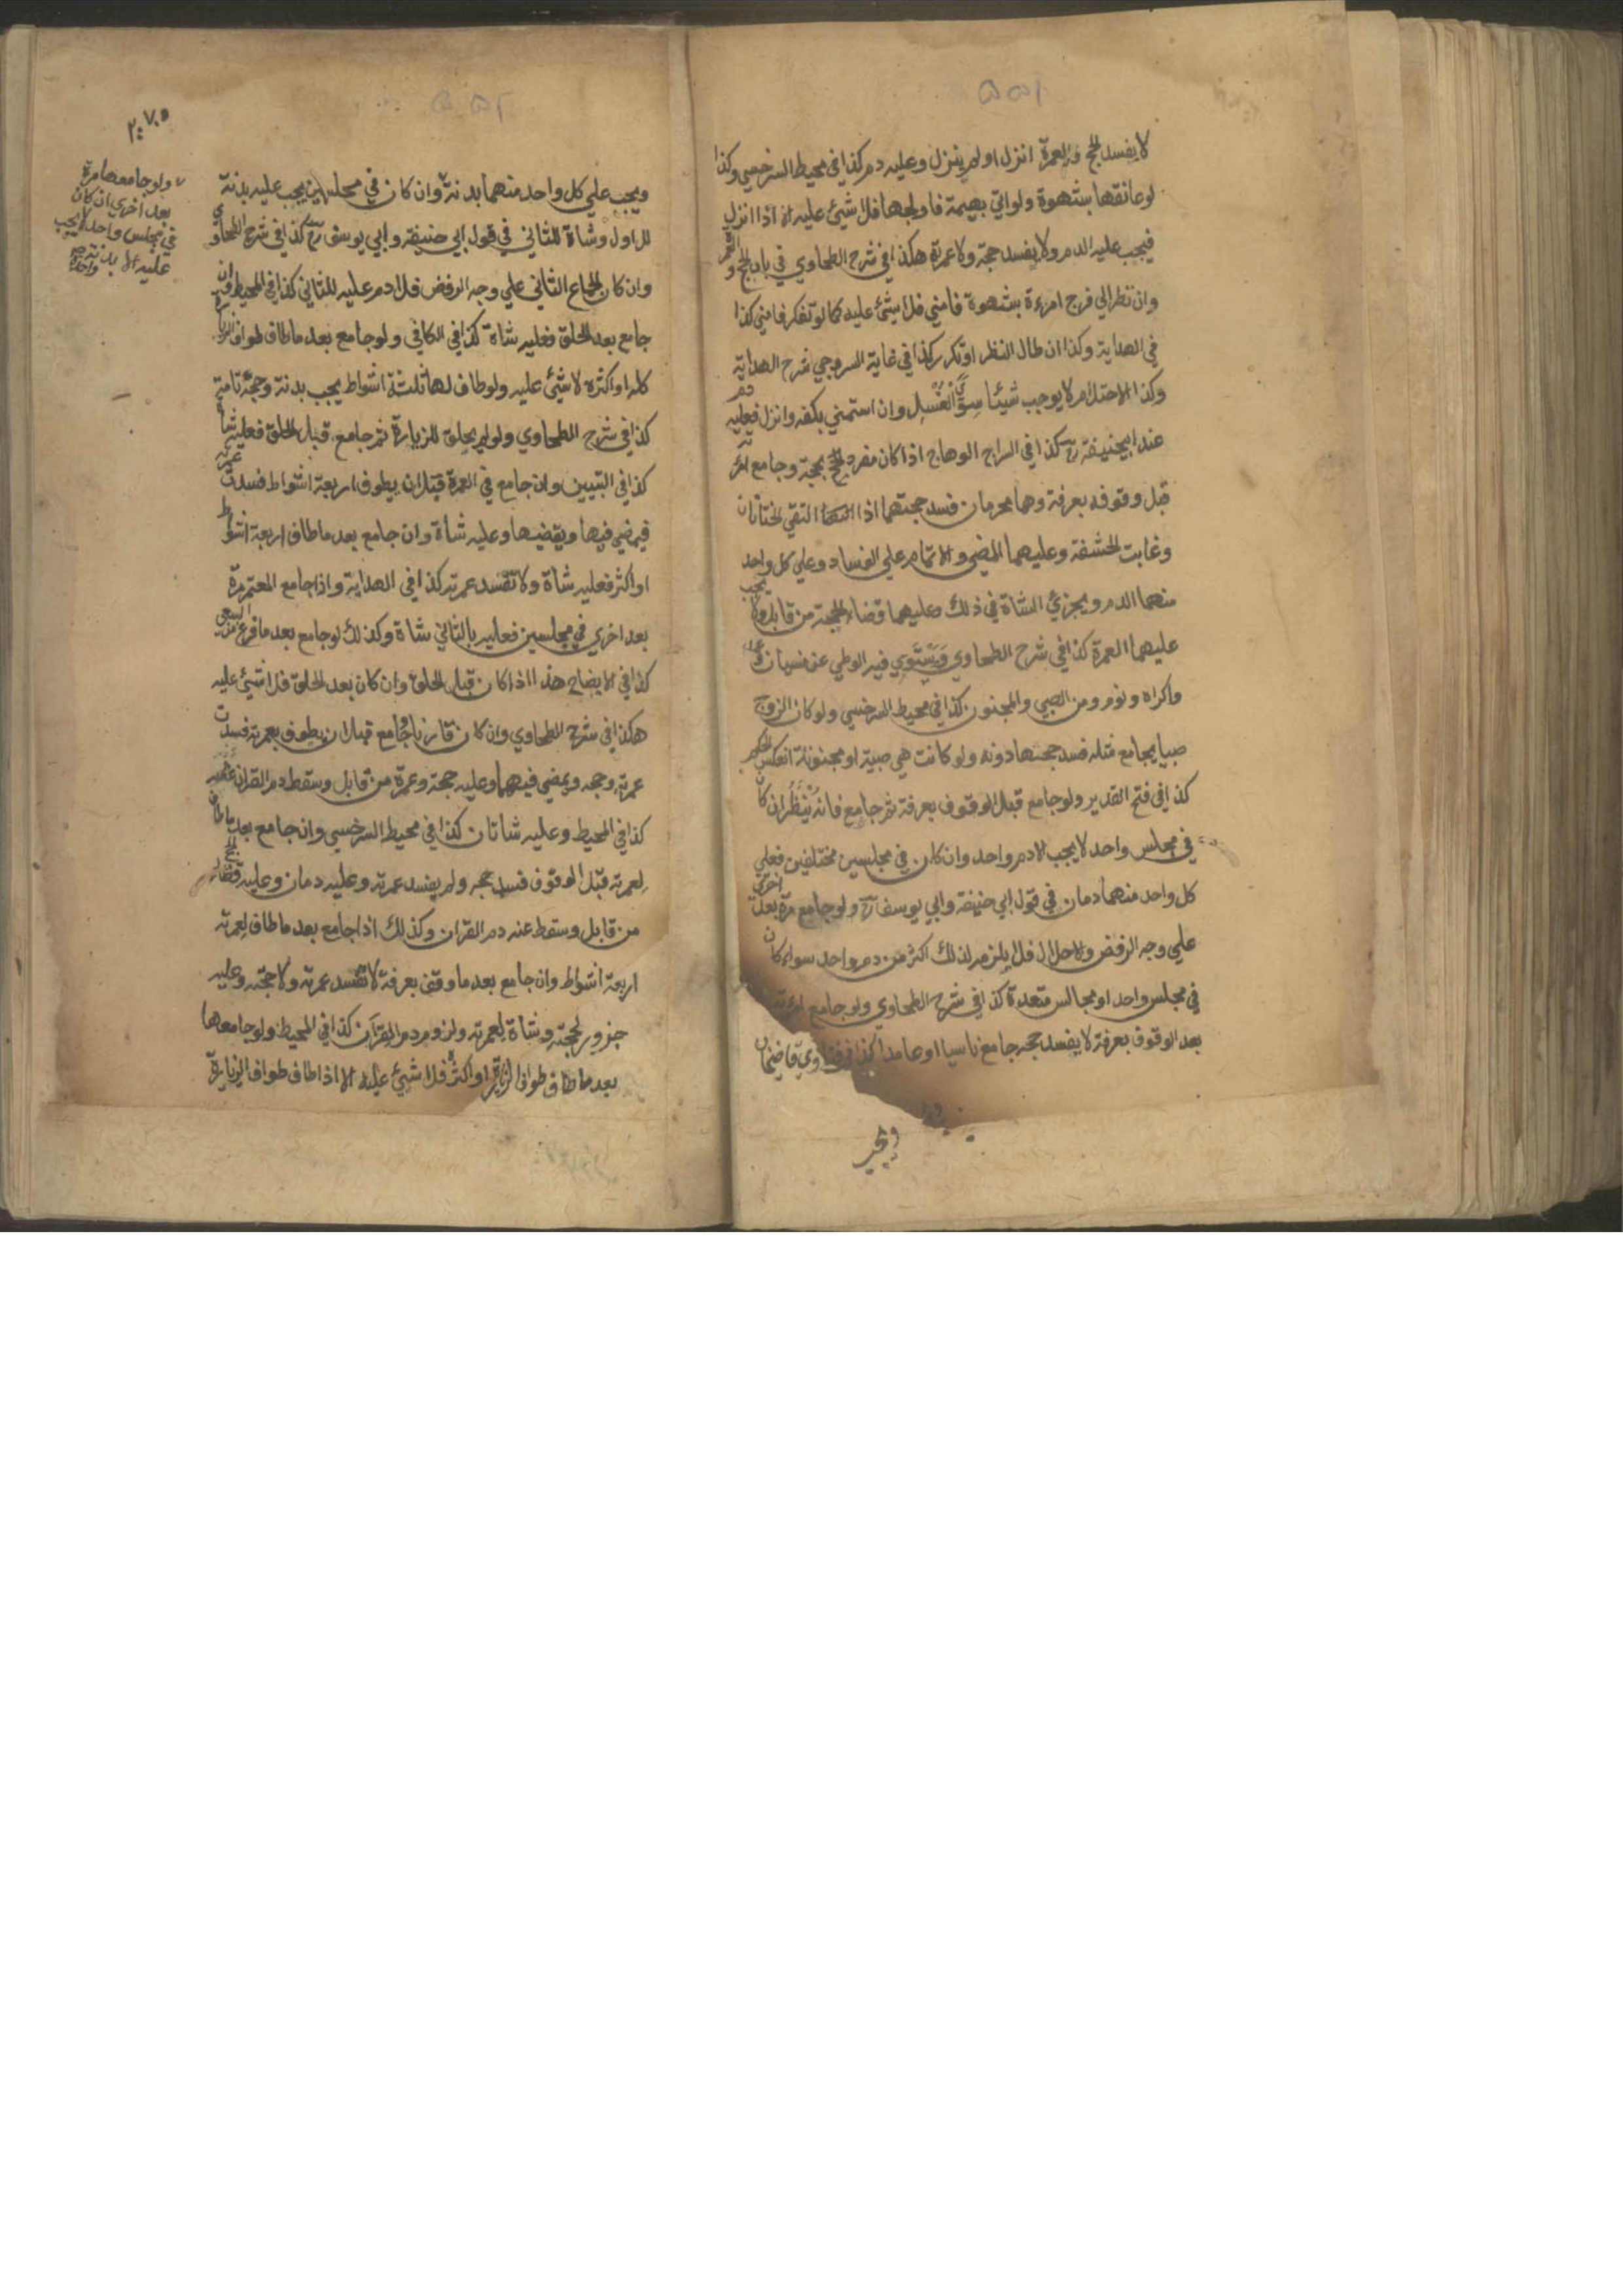 لا يفسد الحج والعمرة انزل او لم ينزل وعليه دم كذا في محيط السرخسي وكذا
لو عانقها بشهوة ولو اتي بهيمة فاولجها فلا شيئ عليه الا اذا انزل
فيجب عليه الدم ولا يفسد حجته ولا عمرته هكذا في شرح الطحاوي في باب الحج والعمرة
وان نظر الي فرج امرءة بشهوة فامني فلا شيئ عليه كما لو تفكر فامني كذا
في الهداية وكذا ان طال النظر او تكرر كذا في غاية السروجي شرح الهداية
وكذا الاحتلام لا يوجب شيئا سوي الغسل وان استمني بكفه وانزل فعليه دم
عند ابيحنيفة رح كذا في السراج الوهاج اذا كان مفرد الحج بحجة وجامع امرئته
قبل وقوفه بعرفة وهما محرمان فسد حجتهما اذا التقي الختانان
وغابت الحشفة وعليهما المضي والاتمام علي الفساد وعلي كل واحد
منهما الدم ويجزئ الشاة في ذلك وعليهما قضاء الحجة من قابل ولا يجب
عليهما العمرة كذا في شرح الطحاوي ويستوي فيه الوطي عن نسيان وعمد
واكراه ونوم ومن الصبي والمجنون كذا في محيط السرخسي ولو كان الزوج
صبيا يجامع مثله فسد حجتها دونه ولو كانت هي صبية او مجنونة انعكس الحكم
كذا في فتح القدير ولو جامع قبل الوقوف بعرفة ثم جامع فانه ينظر ان كان
في مجلس واحد لا يجب الا دم واحد وان كان في مجلسين مختلفين فعلي
كل واحد منهما دمان في قول ابي حنيفة وابي يوسف رح ولو جامع مرة بعد اخري
علي وجه الرفض والاحلال فلا يلزم لذلك اكثر من دم واحد سواء كان
في مجلس واحد او مجالس متعددة كذا في شرح الطحاوي ولو جامع امرئته
بعد الوقوف بعرفة لا يفسد حجه جامع ناسيا او عامدا كذا في فتاوي قاضيخان
ويجب
٢٠٧٥
ولو جامعها مرة
بعد اخري ان كان
في مجلس واحد لا يجب
عليه الا بدنة
واحدة
ويجب علي كل واحد منهما بدنة وان كان في مجلسين يجب عليه بدنة
للاول وشاة للثاني في قول ابي حنيفة وابي يوسف رح كذا في شرح الطحاوي
وان كان الجماع الثاني علي وجه الرفض فلا دم عليه للثاني كذا في المحيط وان
جامع بعد الحلق فعليه شاة كذا في الكافي ولو جامع بعد ما طاف طواف الزيارة
كله او اكثره لا شيئ عليه ولو طاف لها ثلثة اشواط يجب بدنة وحجته تامة
كذا في شرح الطحاوي ولو لم يحلق للزيارة ثم جامع قبل الحلق فعليه شاة
كذا في التبيين وان جامع في العمرة قبل ان يطوف اربعة اشواط فسدت عمرته
فيمضي فيها ويقضيها وعليه شاة وان جامع بعد ما طاف اربعة اشواط
او اكثر فعليه شاة ولا تفسد عمرته كذا في الهداية واذا جامع المعتمر مرة
بعد اخري في مجلسين فعليه بالثاني شاة وكذلك لو جامع بعد ما فرغ من السعي
كذا في الايضاح هذا اذا كان قبل الحلق وان كان بعد الحلق فلا شيئ عليه
هكذا في شرح الطحاوي وان كان قارنا وجامع قبل ان يطوف بعمرته فسدت
عمرته وحجه ويمضي فيهما وعليه حجة وعمرة من قابل وسقط دم القران عنه
كذا في المحيط وعليه شاتان كذا في محيط السرخسي وان جامع بعد ما طاف
لعمرته قبل الوقوف فسد حجه ولم يفسد عمرته وعليه دمان وعليه قضاء الحج
من قابل وسقط عنه دم القران وكذلك اذا جامع بعد ما طاف لعمرته
اربعة اشواط وان جامع بعد ما وقف بعرفة لا تفسد عمرته ولا حجته وعليه
جزور لحجته وشاة لعمرته ولزوم دم القران كذا في المحيط ولو جامعها
بعد ما طاف طواف الزيارة او اكثره فلا شيئ عليه الا اذا طاف طواف الزيارة